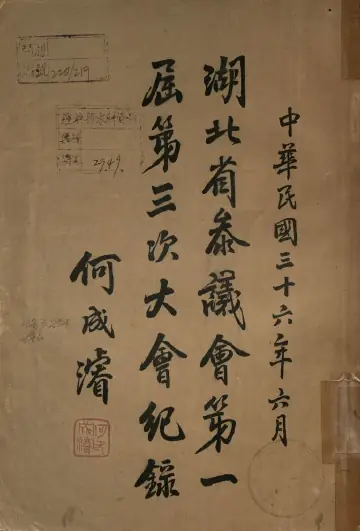 中華民國三十六年六月
湖北省參議會第一
屆第三次大會紀錄
何成濬
何成濬
228/219
2949